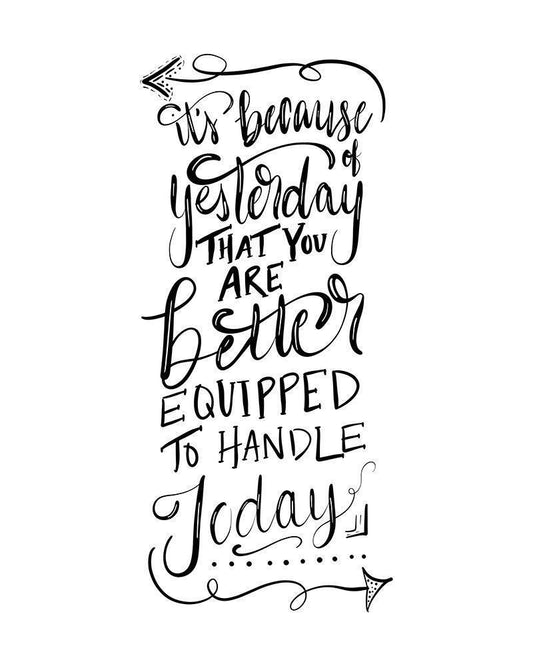 it's because
of
yesterday
THAT YOU
ARE
better
EQUIPPED
TO HANDLE
Today